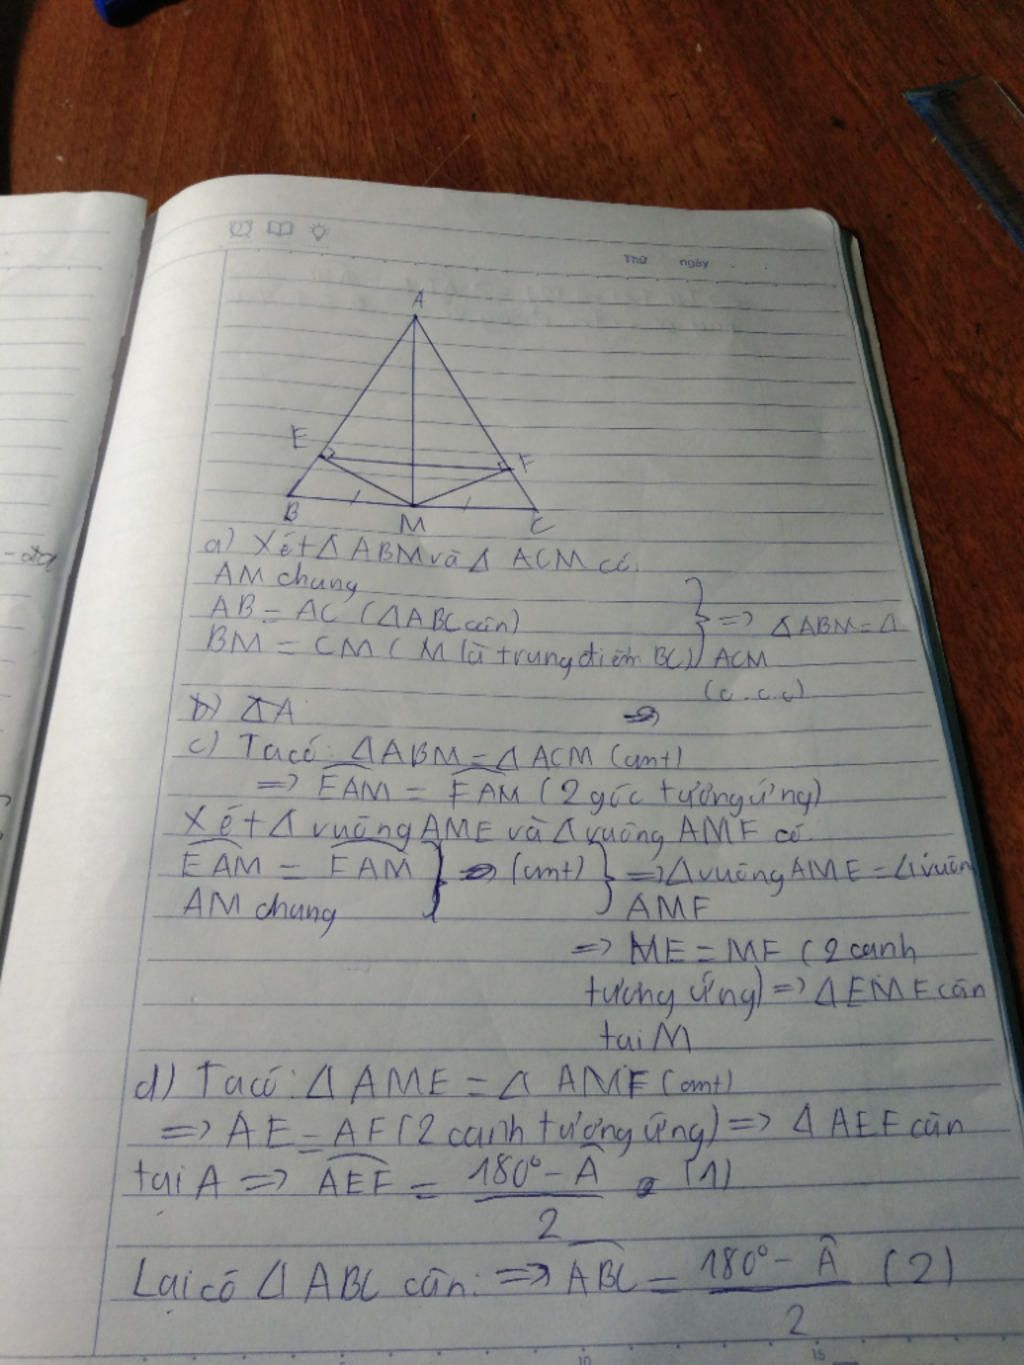 Thứ ngày
A
E
F
B
M
C
a) Xét Δ ABM và Δ ACM có
AM chung
AB = AC (ΔABC cân)
BM = CM (M là trung điểm BC)
} => ΔABM = Δ
ACM
(c.c.c)
b) ΔA
c) Ta có: ΔABM = ΔACM (cmt)
=> EAM = FAM (2 góc tương ứng)
Xét Δ vuông AME và Δ vuông AMF có
EAM = FAM } (cmt) } => Δ vuông AME = Δ vuông
AM chung AMF
=> ME = MF (2 cạnh
tương ứng) => ΔEMF cân
tại M
d) Ta có: Δ AME = Δ AMF (cmt)
=> AE = AF (2 cạnh tương ứng) => Δ AEF cân
tại A => AEF = 180° - Â (1)
2
Lại có Δ ABC cân: => ABC = 180° - Â (2)
2
10 15